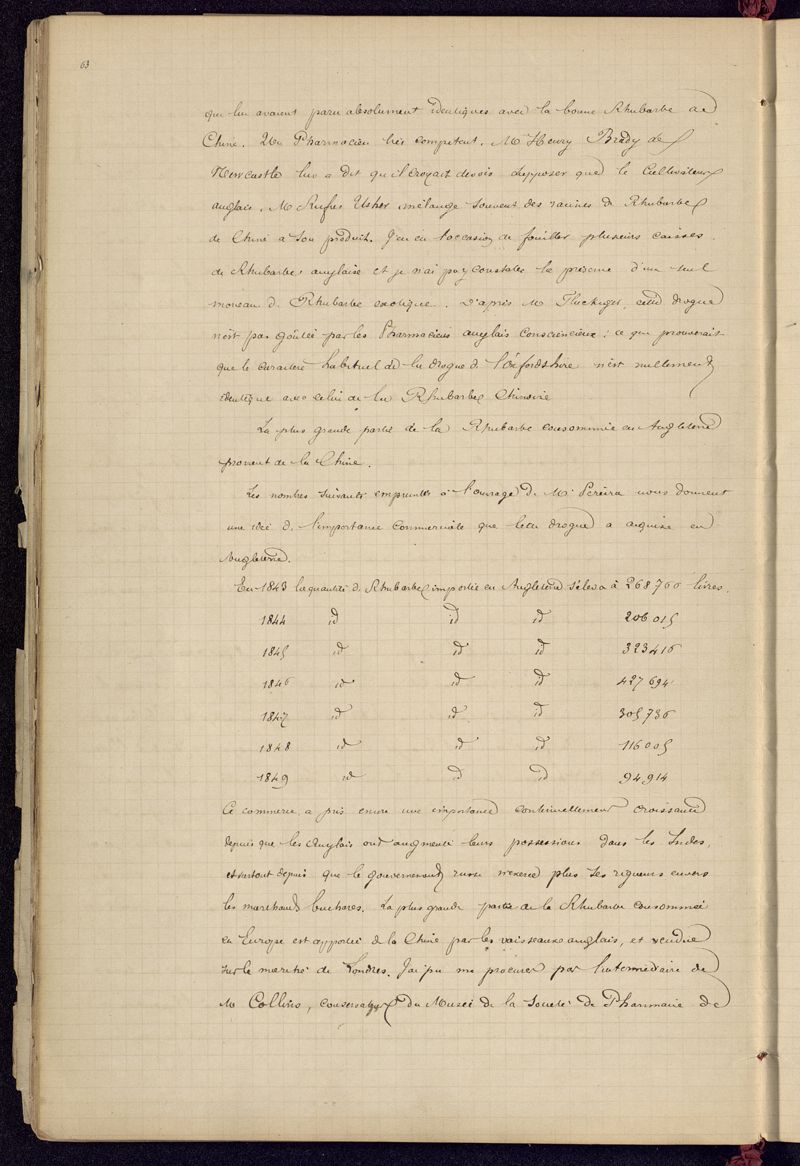 63
qui lui avaient paru absolument identiques avec la bonne Rhubarbe de
Chine. Un Pharmacien très compétent, Mr Henry Brady de
Newcastle lui a dit qu'il croyait devoir supposer que le Cultivateur
anglais, Mr Rufus Usher mélange souvent des racines de Rhubarbe
de Chine à son produit. J'ai eu l'occasion de fouiller plusieurs caisses
de Rhubarbe anglaise et je n'ai pu y constater la présence d'un seul
morceau de Rhubarbe exotique. D'après Mr Fluckiger, cette drogue
n'est pas goûtée par les Pharmaciens anglais consciencieux : ce qui prouverait
que le caractère habituel de la drogue de l'Oxfordshire n'est nullement
identique avec celui de la Rhubarbe Chinoise
La plus grande partie de la Rhubarbe consommée en Angleterre
provient de la Chine.
Les nombres suivants empruntés à l'ouvrage de Mr Pereira nous donnent
une idée de l'importance commerciale que cette drogue a acquise en
Angleterre.
En 1843 la quantité de Rhubarbe importée en Angleterre s'éleva à 268 760 livres.
1844 id id id 206 015
1845 id id id 323 416
1846 id id id 427 694
1847 id id id 305 736
1848 id id id 116 005
1849 id id id 94 914
Ce commerce a pris encore une importance continuellement croissante
depuis que les Anglais ont augmenté leurs possessions dans les Indes,
et surtout depuis que le gouvernement russe n'exerce plus ses rigueurs envers
les marchands buchares. La plus grande partie de la Rhubarbe consommée
en Europe est apportée de la Chine par les vaisseaux anglais, et vendue
sur le marché de Londres. J'ai pu me procurer par l'intermédiaire de
Mr Collins, conservateur du Musée de la Société de Pharmacie de